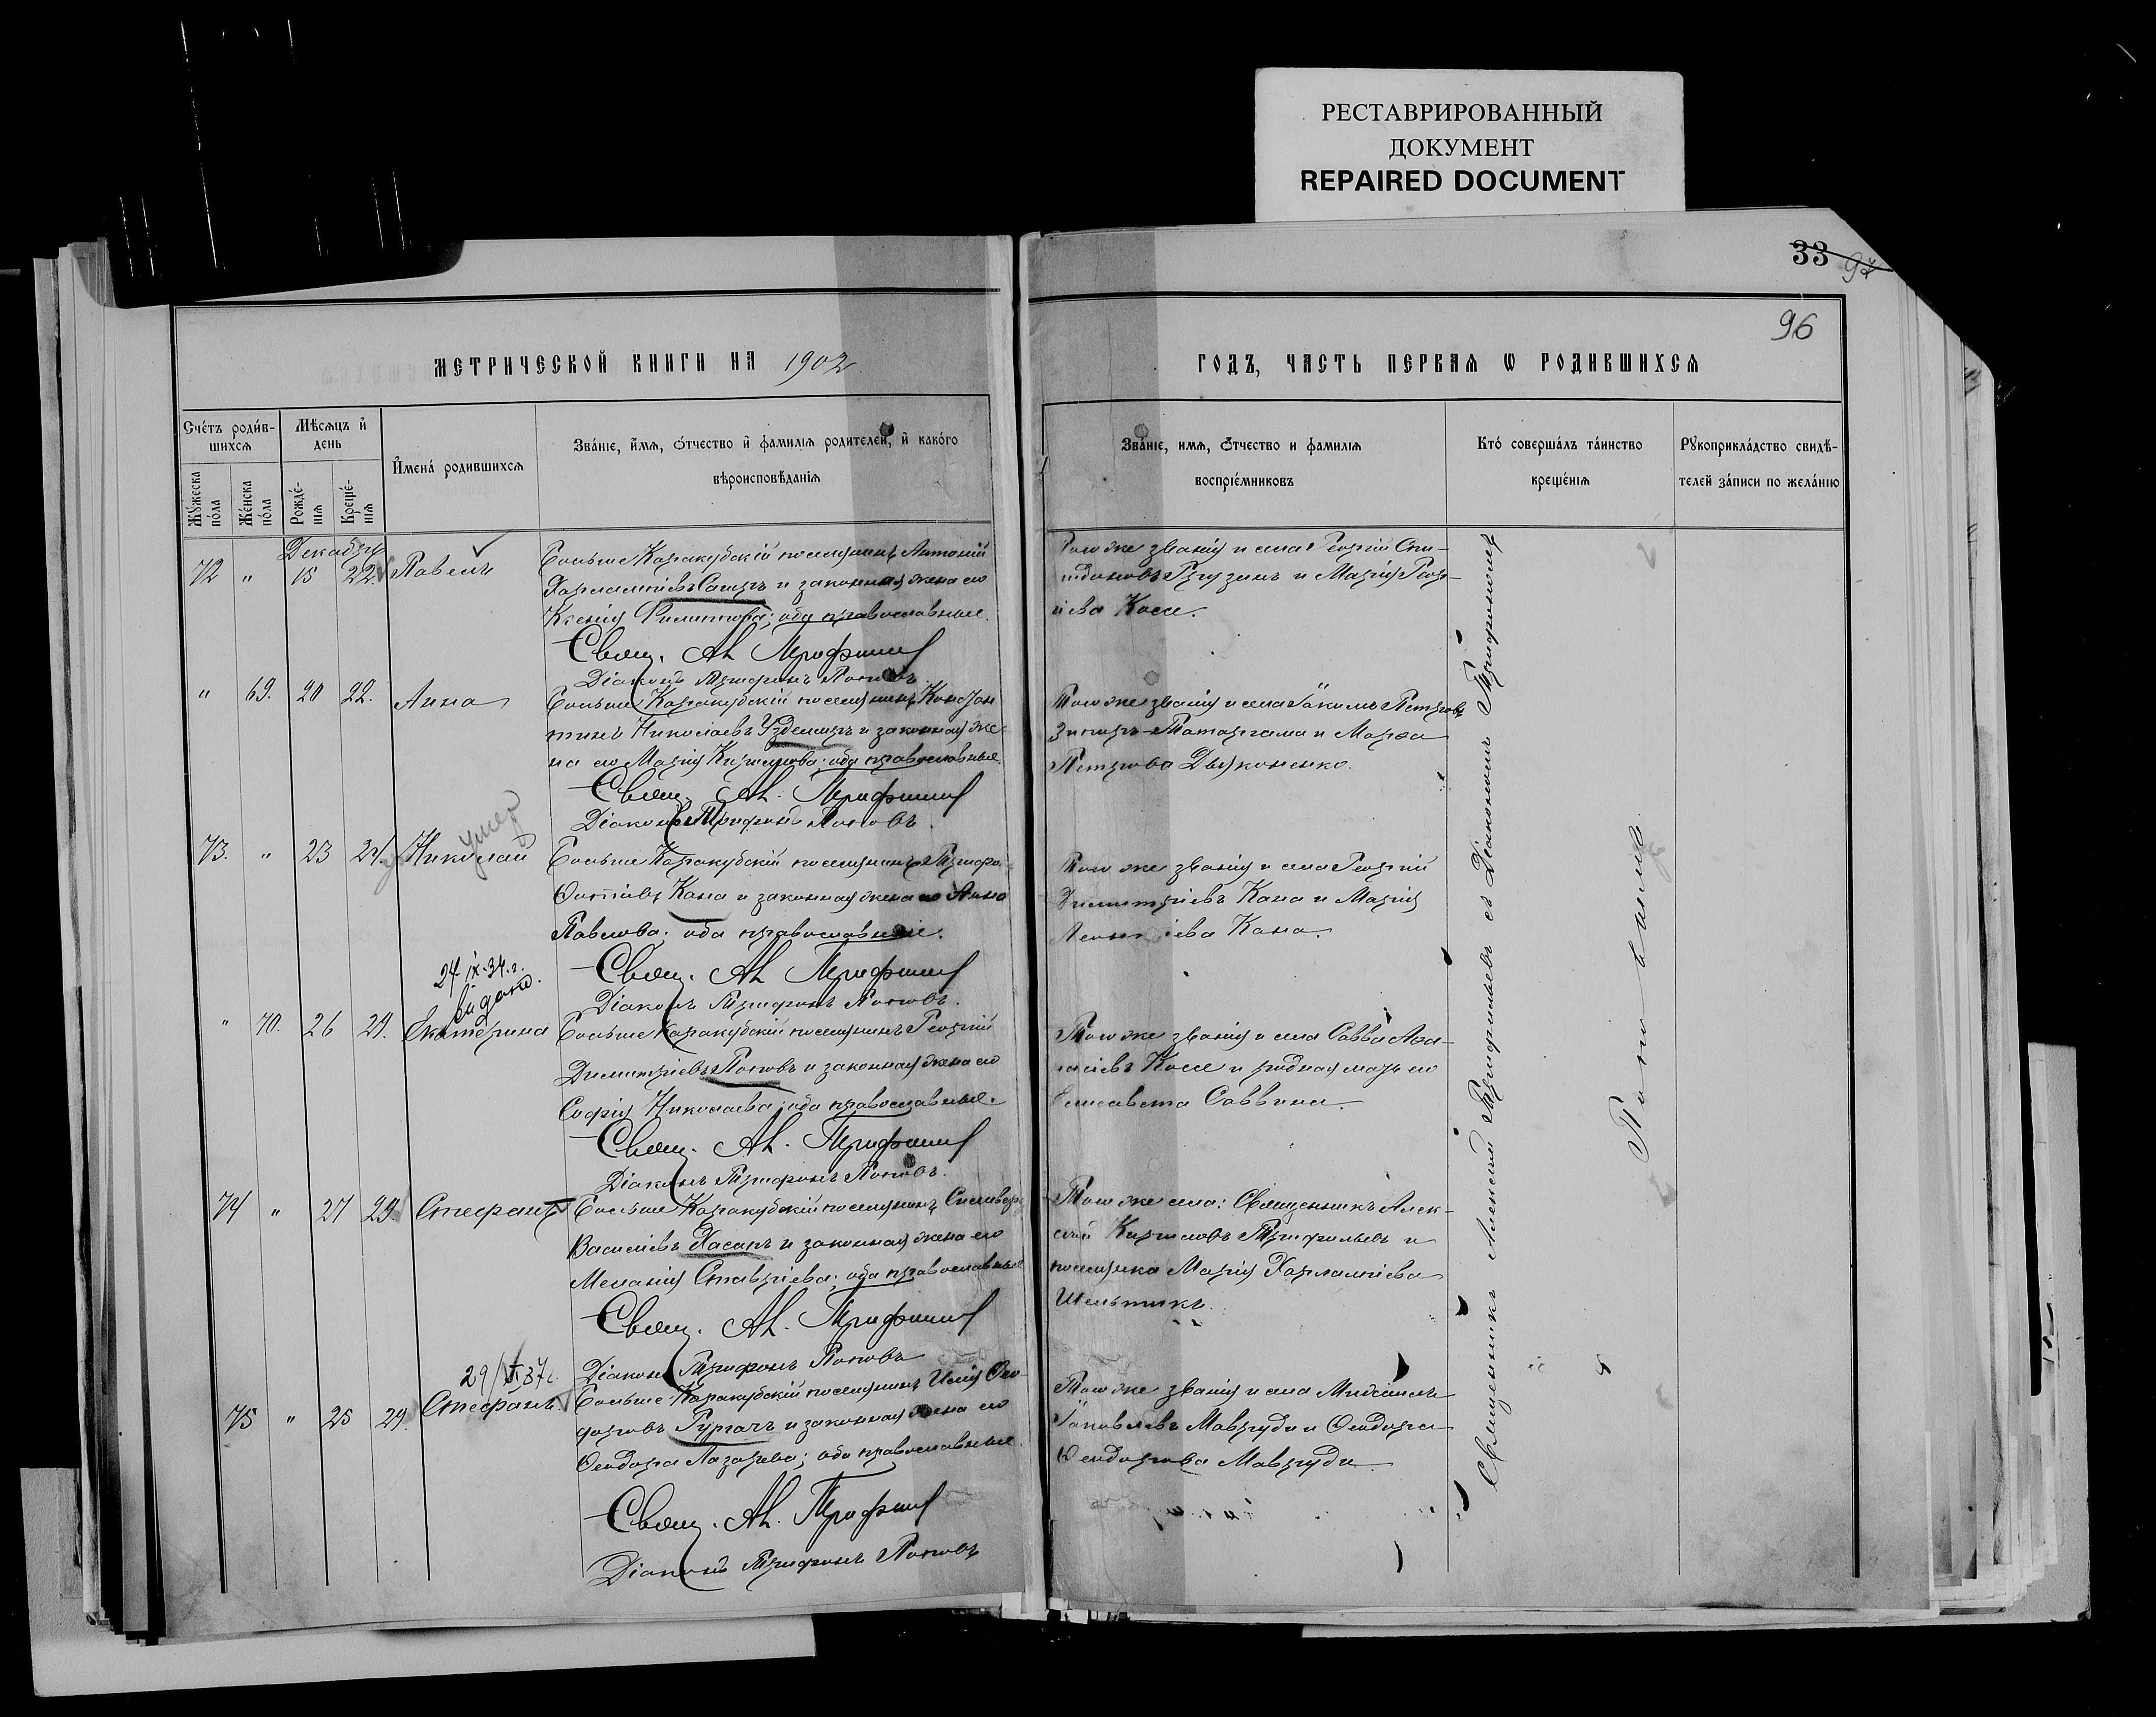 РЕСТАВРИРОВАННЫЙ
ДОКУМЕНТ
REPAIRED DOCUMENT
33 97
96
МЕТРИЧЕСКОЙ КНИГИ НА 1902
ГОДЪ, ЧАСТЬ ПЕРВАЯ Ѡ РОДИВШИХСЯ
Счетъ родив-
шихся
Мужеска
пола
Женска
пола
Мѣсяцъ и
день
Рожде-
нія
Креще-
нія
Имена родившихся
Званіе, имя, отчество и фамилія родителей, и какого
вѣроисповѣданія
Званіе, имя, отчество и фамилія
воспріемниковъ
Кто совершалъ таинство
крещенія
Рукоприкладство свидѣ-
телей записи по желанію
Декабрь
72 " 15 22. Павелъ
Больше Каракубскій поселянинъ Антоній
Харлампіевъ и законная жена его
Ксенія Филиппова; оба православные.
Свящ. Ал. Трифильев
Діаконъ Трифонъ Поповъ
Того же званія и села Георгій Спи-
ридоновъ Грузинъ и Марія Геор-
гіева Косе.
" 69. 20 22. Анна
Больше Каракубскій поселянинъ Констан
тинъ Николаевъ Уздемиръ и законная же-
на его Марія Кириллова; оба православные
Свящ. Ал. Трифильев
Діаконъ Трифонъ Поповъ.
Того же званія и села Іакимъ Петровъ
Татаргама и Марѳа
Петрова Дьяконенко.
умер
73. " 23 24. Николай
Больше Каракубскій поселянинъ Трифонъ
Фотіевъ Кана и законная жена его Анна
Павлова; оба православные.
Свящ. Ал. Трифильев
Діаконъ Трифонъ Поповъ.
Того же званія и села Георгій
Димитріевъ Кана и Марія
Леонтіева Кана.
24 IX.34.г.
видано.
" 70. 26 29. Екатерина
Больше Каракубскій поселянинъ Георгій
Димитріевъ Поповъ и законная жена его
Софія Николаева; оба православные.
Свящ. Ал. Трифильев
Діаконъ Трифонъ Поповъ.
Того же званія и села Савва Аѳа-
насіевъ Косе и родная мать его
Елисавета Саввина.
74 " 27 29. Стефанъ
Больше Каракубскій поселянинъ Сильверстъ
Василіевъ Хасапъ и законная жена его
Меланія Ставріева; оба православные
Свящ. Ал. Трифильев
Діаконъ Трифонъ Поповъ
Того же села: Священникъ Алек-
сѣй Кирилловъ Трифильевъ и
поселянка Марія Харлампіева
Шельтикъ.
75 " 25 29. Стефанъ.
Больше Каракубскій поселянинъ Илія Ѳео-
доровъ Гургачъ и законная жена его
Ѳеодора Лазарева; оба православные.
Свящ. Ал. Трифильев
Діаконъ Трифонъ Поповъ
Того же званія и села Михаилъ
Іаковлевъ Мавруди и Ѳеодора
Ѳеодорова Мавруди.
Священникъ Алексѣй Трифильевъ съ Діакономъ Трифономъ
Поповымъ.